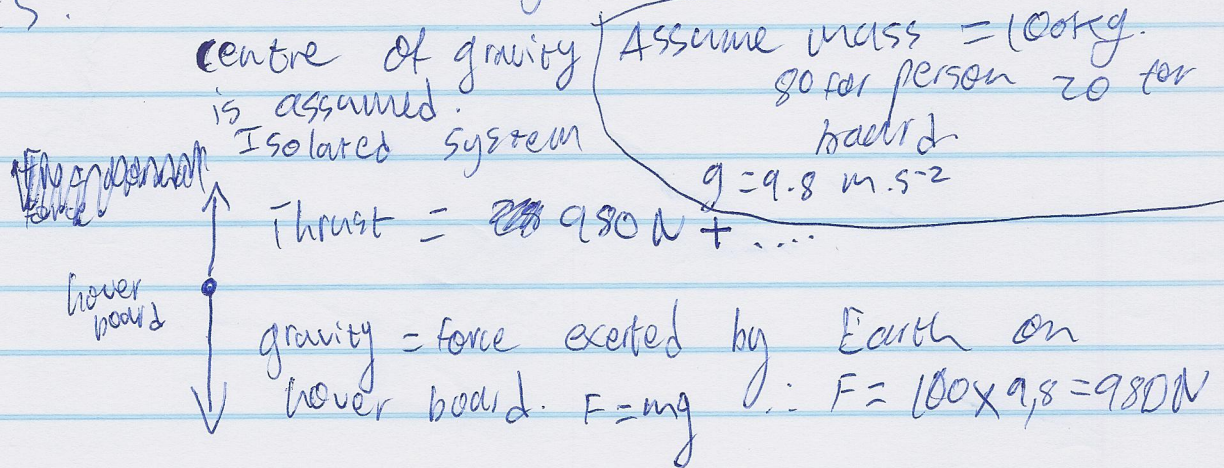 5.
centre of gravity
is assumed.
Isolated system
Assume mass = 100kg.
80 for person 20 for
board
g = 9.8 m.s-2
force
Thrust = 980N + ....
hover
board
gravity = force exerted by Earth on
hover board. F=mg ∴ F= 100x9,8=980N